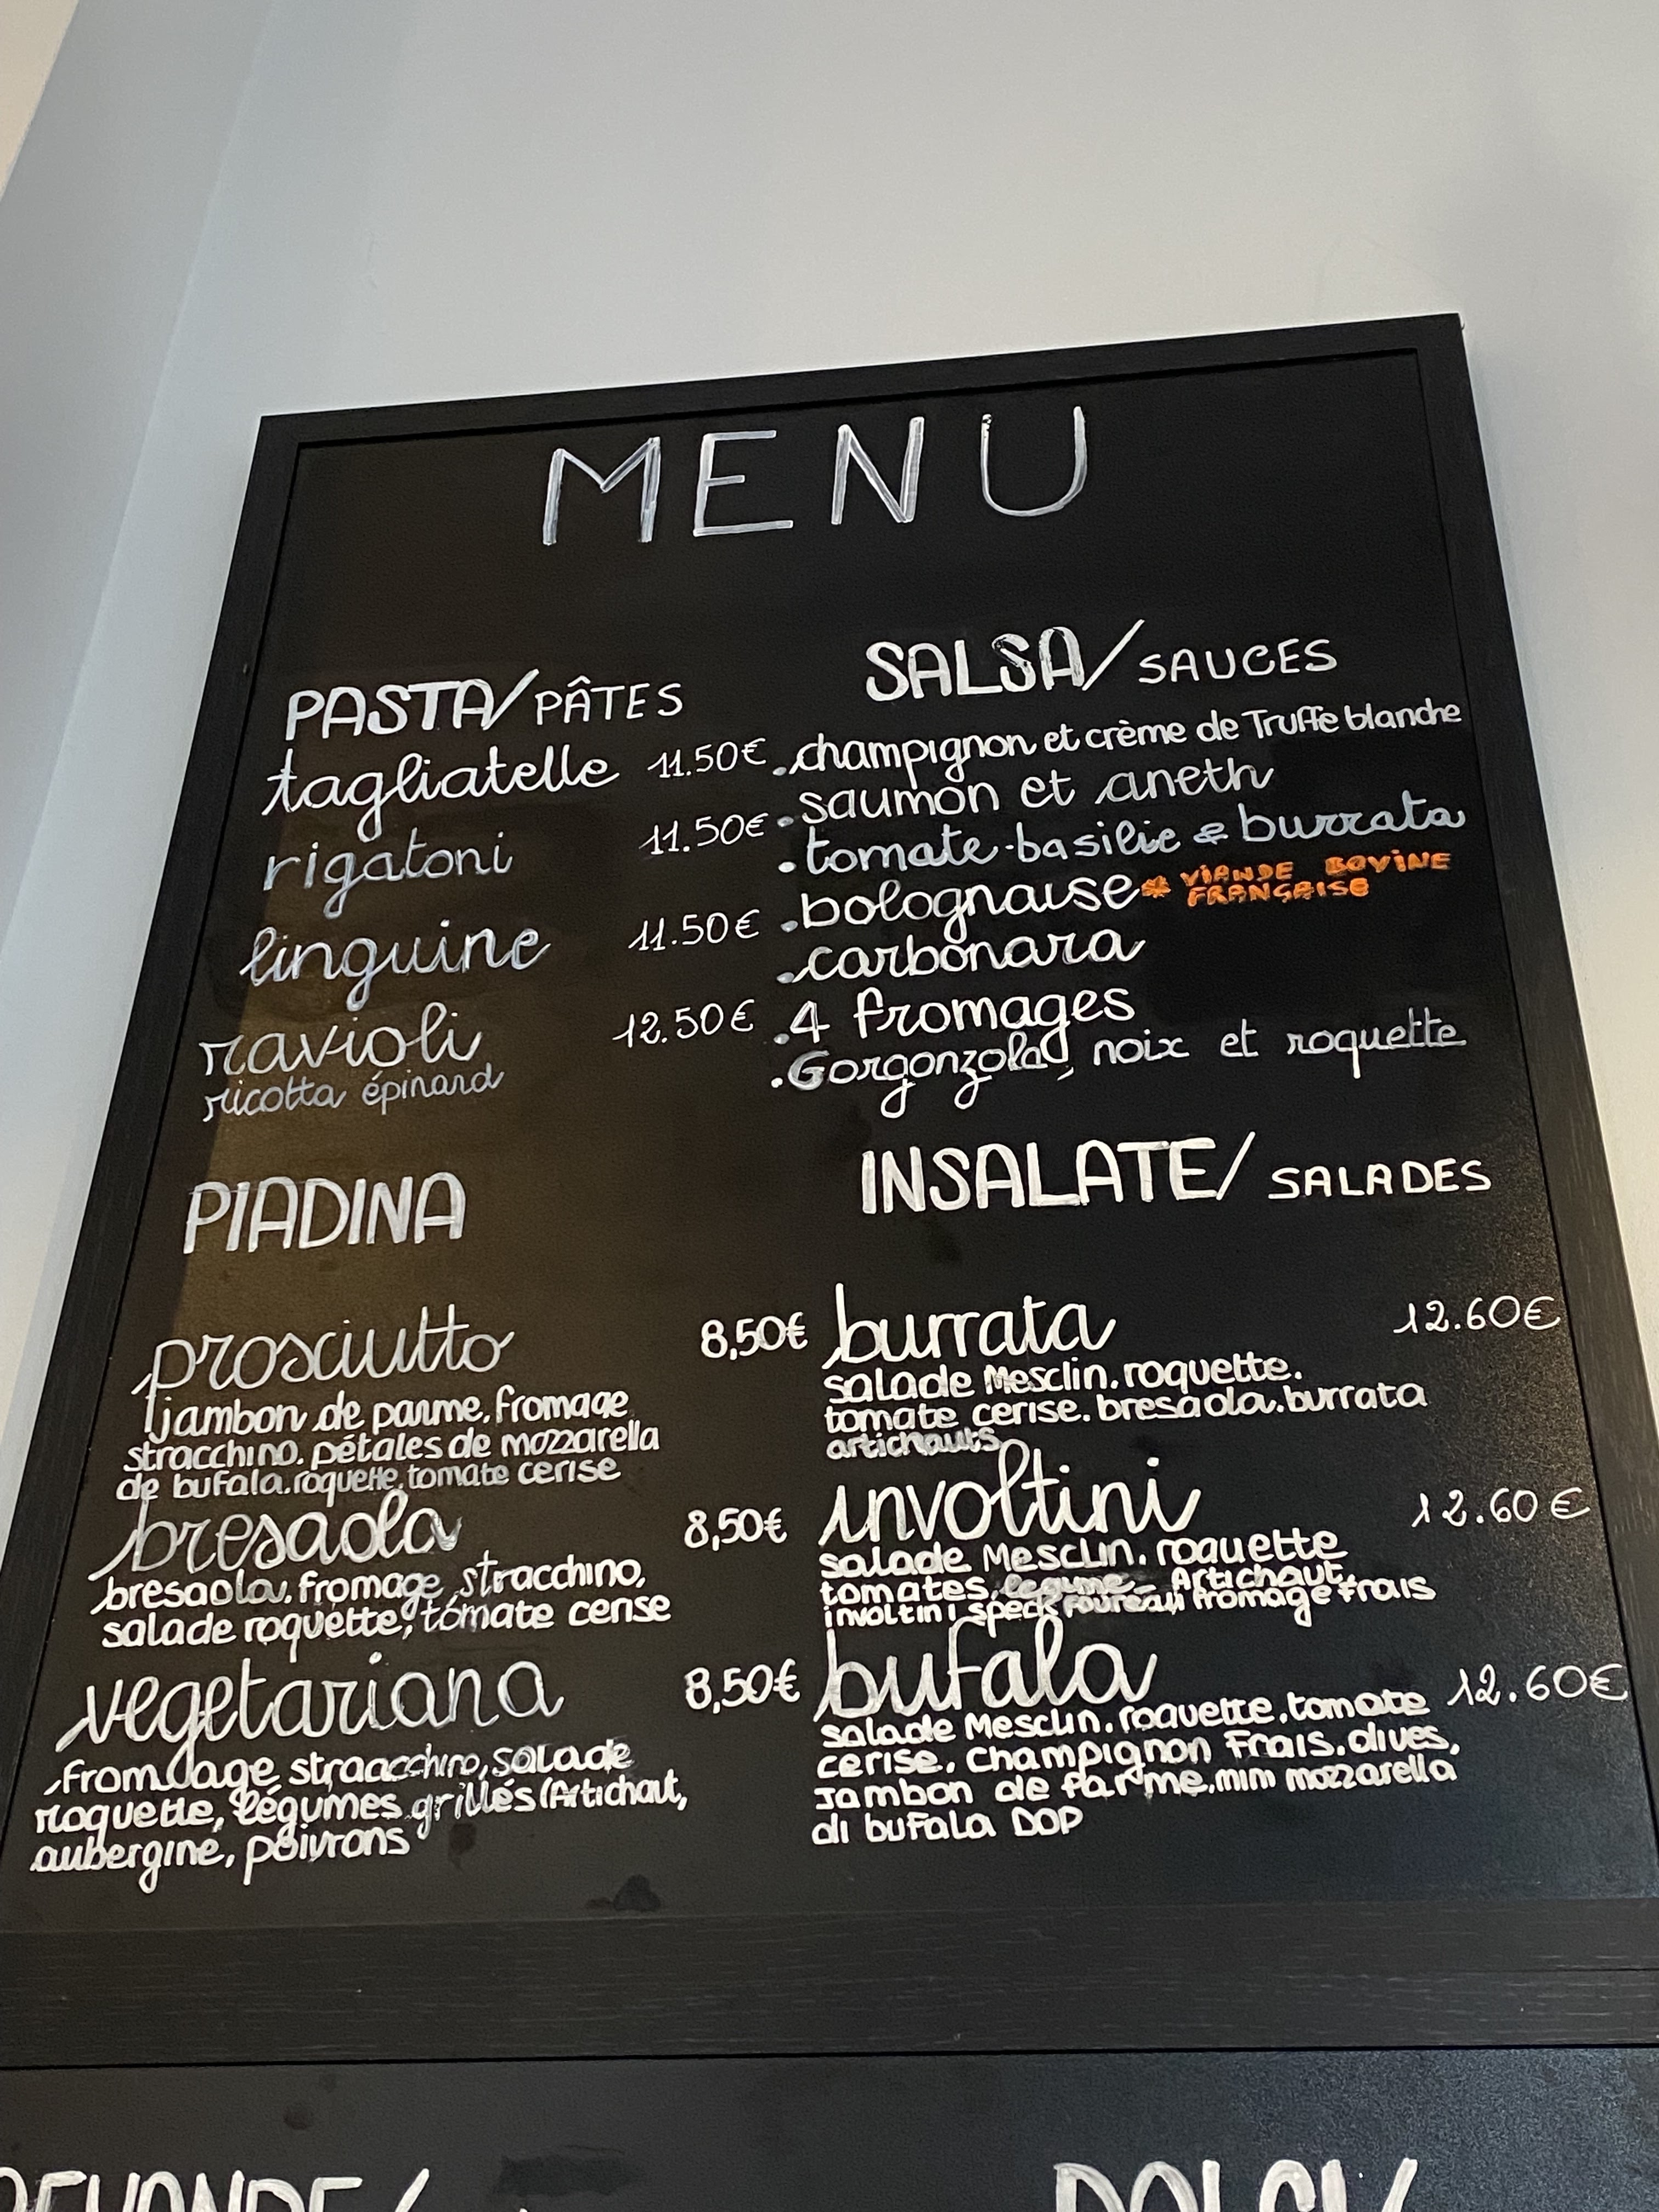 MENU
PASTA/PÂTES
tagliatelle 11.50€
rigatoni 11.50€
linguine 11.50€
ravioli 12.50€
ricotta épinard
SALSA/SAUCES
.champignon et crème de Truffe blanche
.saumon et aneth
.tomate-basilic & burrata
.bolognaise* VIANDE BOVINE
FRANÇAISE
.carbonara
.4 fromages
.Gorgonzola, noix et roquette
PIADINA
prosciutto 8,50€
jambon de parme, fromage
stracchino, pétales de mozzarella
de bufala, roquette, tomate cerise
bresaola 8,50€
bresaola, fromage stracchino,
salade roquette, tomate cerise
vegetariana 8,50€
fromage straacchino, salade
roquette, légumes grillés (Artichaut,
aubergine, poivrons
INSALATE/SALADES
burrata 12.60€
salade Mesclin. roquette.
tomate cerise. bresaola. burrata
artichauts
involtini 12.60€
salade Mesclin. roquette
tomates, legume - Artichaut,
involtini speck fromage frais
bufala 12.60€
salade Mesclin. roquette, tomate
cerise, Champignon Frais. olives,
Jambon de Parme, mini mozzarella
di bufala DOP